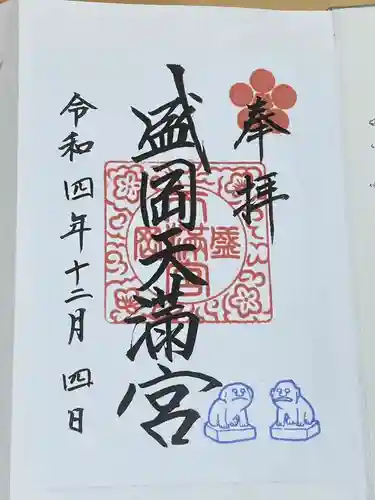 奉拝
盛岡天満宮
令和四年十二月四日